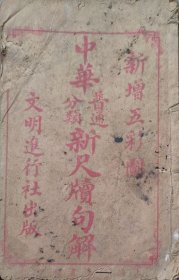 新增五彩附圖
中華普通分類新尺牘句解
文明進行社出版